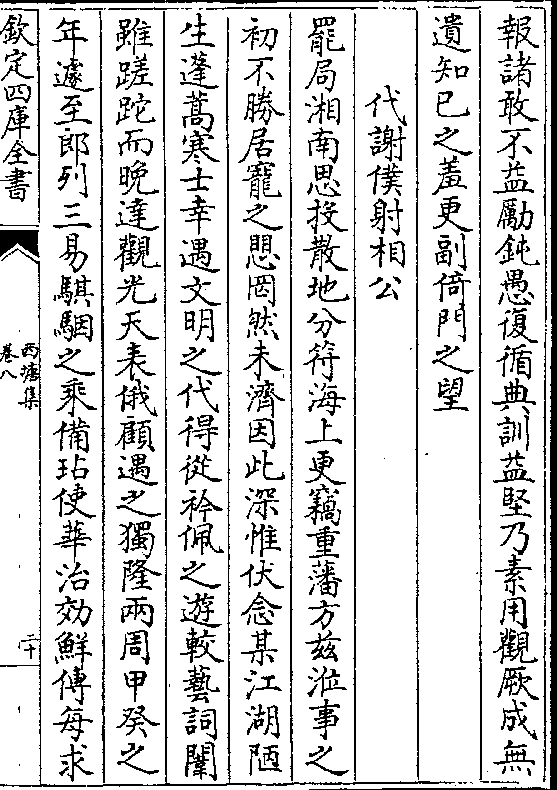 報諸敢不益勵鈍愚復循典訓益堅乃素用觀厥成無
遺知已之羞更副倚門之望
代謝僕射相公
罷局湘南思投散地分符海上更竊重藩方兹涖事之
初不勝居寵之愳罔然未濟因此深惟伏念某江湖陋
生蓬蒿寒士幸遇文明之代得從衿佩之遊較藝詞闈
雖蹉跎而晚達觀光天表俄顧遇之獨隆兩周甲癸之
年遽至郎列三易騏駰之乘備玷使華治効鮮傳每求
欽定四庫全書
西塘集
卷八
二十